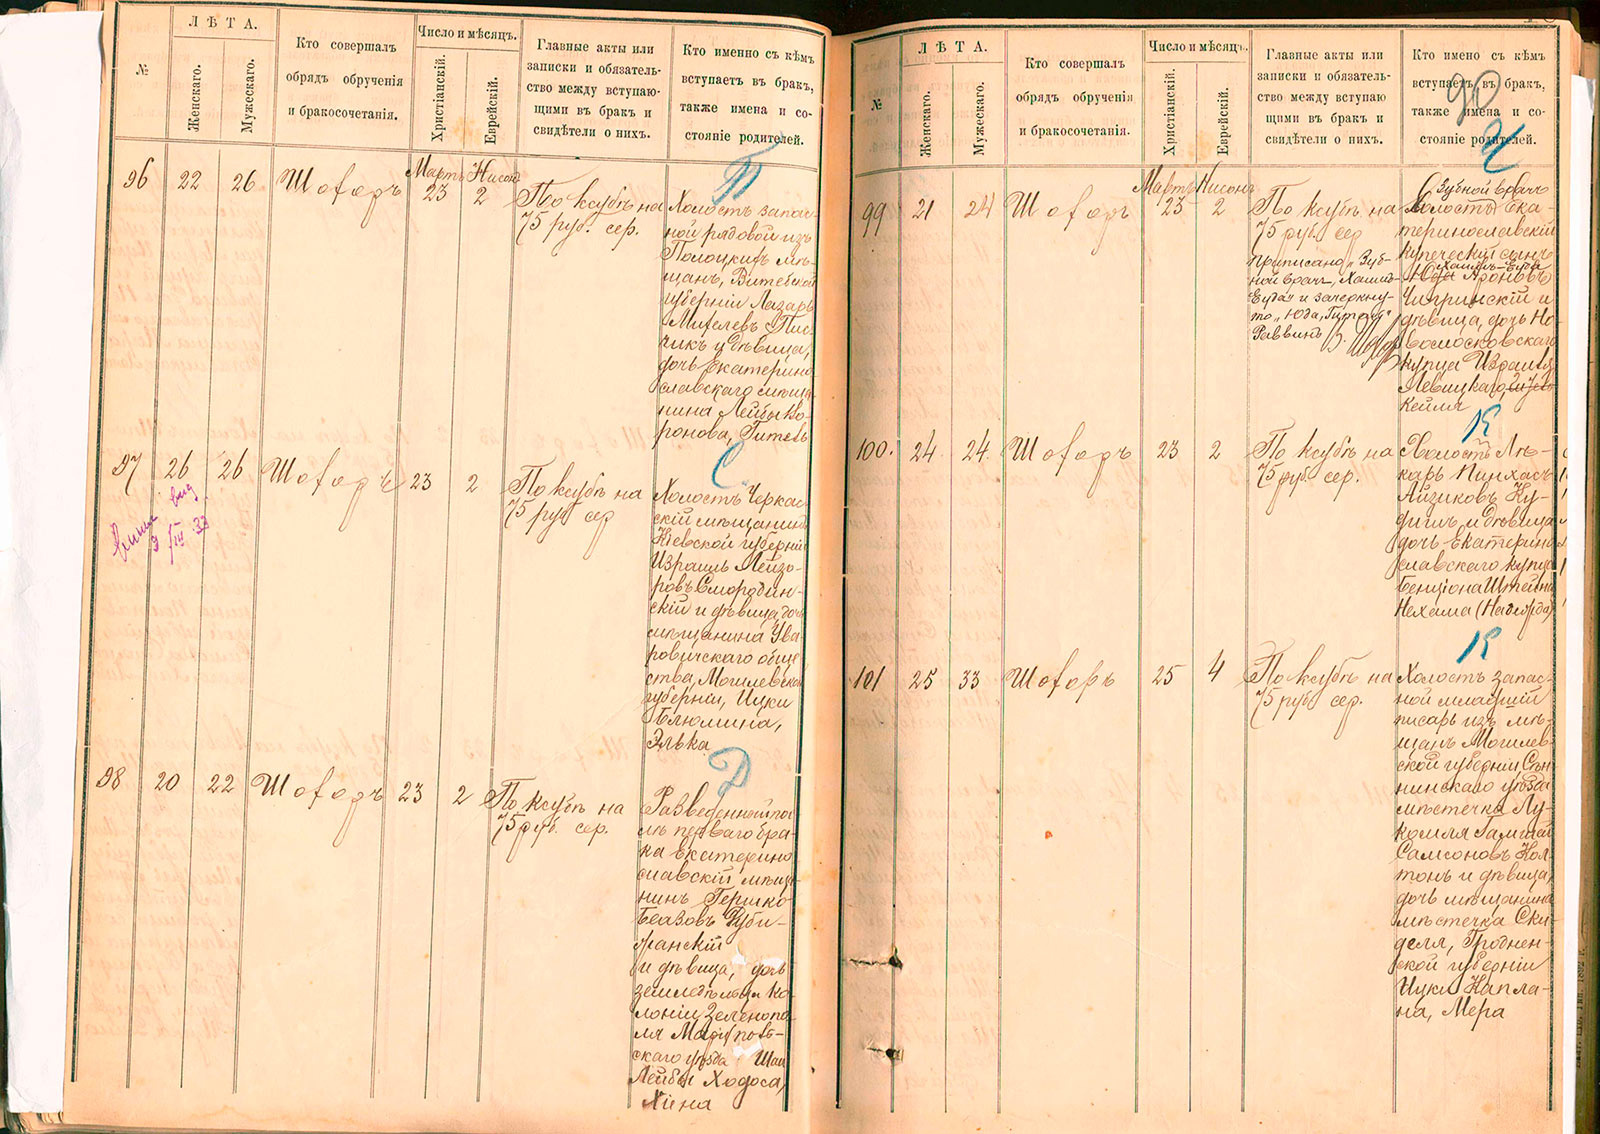 №
ЛѢТА.
Женскаго.
Мужескаго.
Кто совершалъ
обрядъ обрученія
и бракосочетанія.
Число и мѣсяцъ.
Христіанскій.
Еврейскій.
Главные акты или
записки и обязатель-
ство между вступаю-
щими въ бракъ и
свидѣтели о нихъ.
Кто именно съ кѣмъ
вступаетъ въ бракъ,
также имена и со-
стояніе родителей.
П
96 22 26 Шофоръ
Мартъ Нисонъ
23 2
По ксубѣ на
75 руб. сер.
Холостъ запас-
ной рядовой изъ
Полоцкихъ мѣ-
щанъ, Витебской
губерніи Лазарь
дѣвица,
дочь Екатерино
славскаго мѣща
нина Лейбы Хо-
ронова, Гитель
С
97 26 26 Шофоръ 23 2
По ксубѣ на
75 руб сер
3 III 33
Холостъ Черкас-
скій мѣщанинъ
Кіевской губерніи
Израиль Лейзо-
ровъ Смородин-
скій и дѣвица, дочь
мѣщанина Ува-
ровичскаго обще
ства, Могилевской
губерніи, Ицки
Блюмина,
Элька
Д
98 20 22 Шофоръ 23 2
По ксубѣ на
75 руб. сер.
Разведенный по
слѣ перваго бра-
ка Екатерино
славскій мѣща-
нинъ Гершко
и дѣвица, дочь
земледѣльца ко-
лоніи Зеленопо-
ля Маріуполь-
скаго уѣзда Шаи
Лейбы Ходоса,
Хіена
№
ЛѢТА.
Женскаго.
Мужескаго.
Кто совершалъ
обрядъ обрученія
и бракосочетанія.
Число и мѣсяцъ.
Христіанскій.
Еврейскій.
Главные акты или
записки и обязатель-
ство между вступаю
щими въ бракъ и
свидѣтели о нихъ.
Кто имено съ кѣмъ
вступаетъ въ бракъ,
также имена и со-
стояніе родителей.
90
Ч
99 21 24 Шофоръ
Мартъ Нисонъ
23 2
По ксубѣ на
75 руб. сер
Приписано „Зуб-
ной врачъ, Хаимъ-
Еуда" и зачеркну-
то „Юда, Гитель"
Раввинъ
Зубной врачъ
Холостъ Ека-
теринославскій
купеческій сынъ
Хаимъ-Еуда
Юда Ароновъ
Чигринскій и
дѣвица, дочь Но-
вомосковскаго
купца Израиля
Левицкаго, Гитель
Кейля
К
100. 24 24 Шофоръ 23 2
По ксубѣ на
75 руб. сер.
Холостъ Лѣ-
карь Пинхасъ
Айзиковъ Ку-
дишъ и дѣвица
дочь Екатерино
славскаго купца
Бенціона Штейна
Нехама (Надежда)
К
101 25 33 Шофоръ 25 4
По ксубѣ на
75 руб. сер.
Холостъ запас-
ной младшій
писарь изъ мѣ-
щанъ Могилев-
ской губерніи Сѣн-
нинскаго уѣзда
мѣстечка Лу-
комля
Самсоновъ Кол-
тонъ и дѣвица,
дочь мѣщанина
мѣстечка Ски-
деля, Гроднен-
ской губерніи
Ицки Капла-
на, Мера